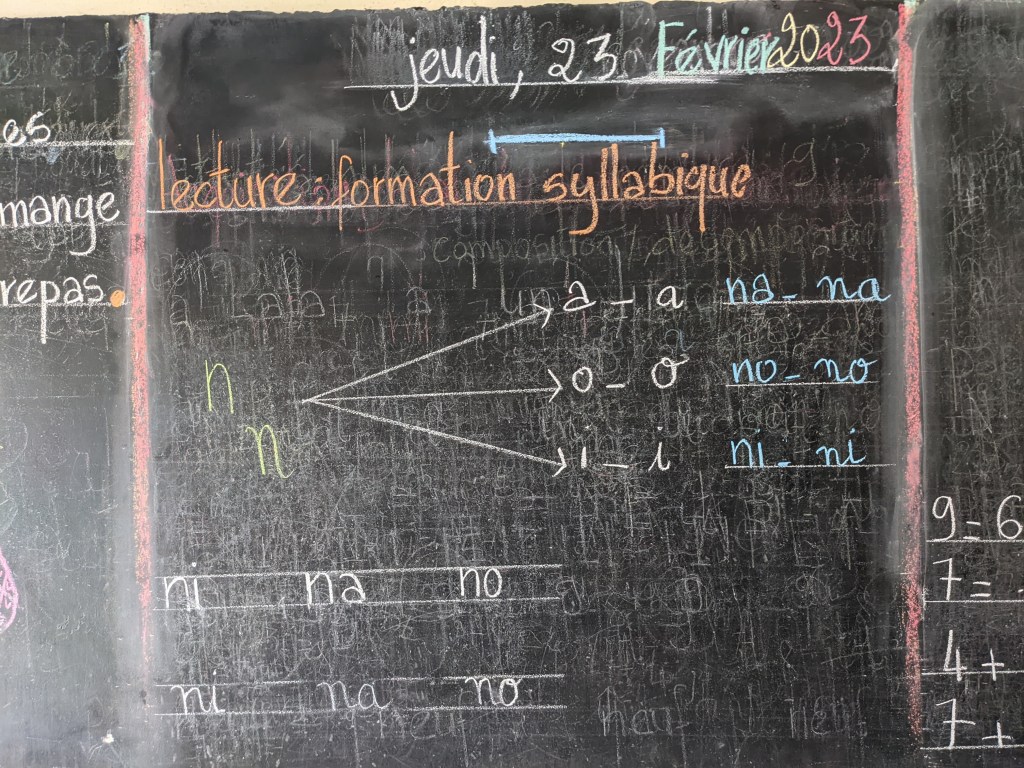 es
mange
repas.
jeudi, 23 Février 2023
lecture : formation syllabique
composition / décomposition
n
n
a - a na - na
o - o no - no
i - i ni - ni
ni na no
ni na no
9 = 6
7 =
4 +
7 +